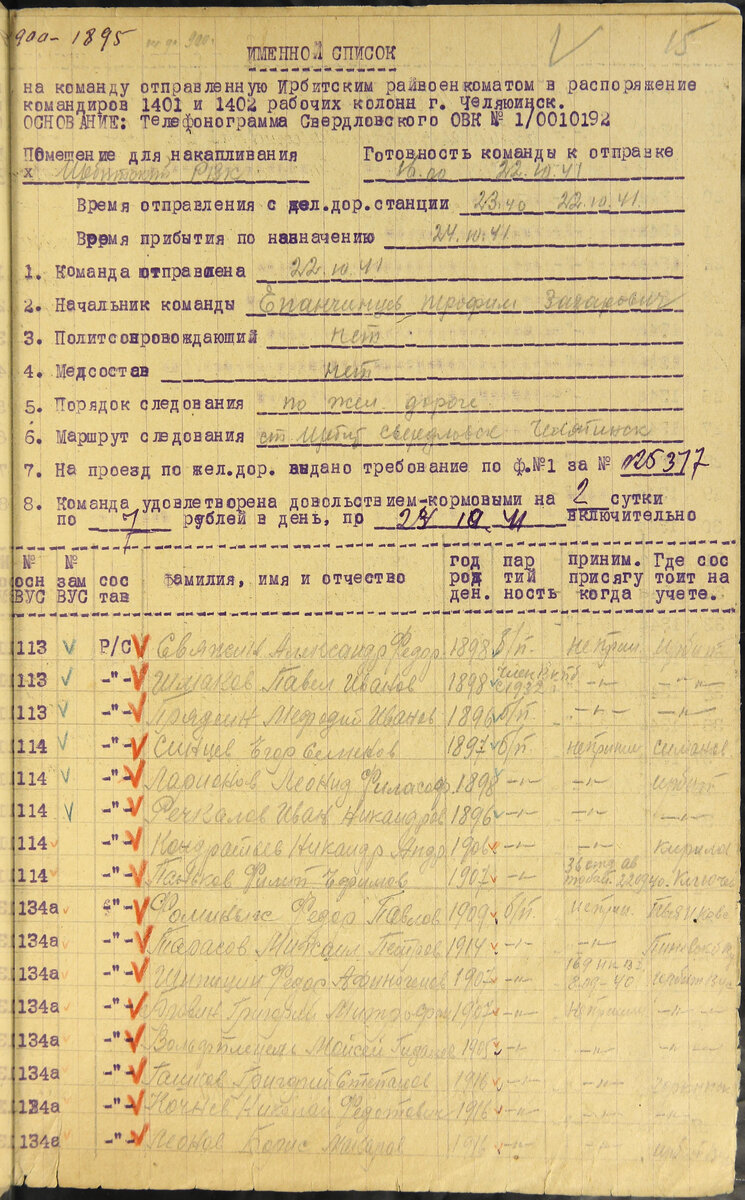 900- 1895
15
ИМЕННОЙ СПИСОК
на команду отправленную Ирбитским райвоенкоматом в распоряжение
командиров 1401 и 1402 рабочих колонн г. Челяюинск.
ОСНОВАНИЕ: Телефонограмма Свердловского ОВК № 1/0010192
Помещение для накапливания Готовность команды к отправке
х Ирбитский РВК 16.00 22.10.41
Время отправления с жел.дор.станции 23.40 22.10.41
Время прибытия по назначению 24.10.41
1. Команда отправлена 22.10.41
2. Начальник команды Епанчинцев Трофим Захарович
3. Политсопровождающий нет
4. Медсостав нет
5. Порядок следования по жел. дороге
6. Маршрут следования ст. Ирбит Свердловск Челябинск
7. На проезд по жел.дор. выдано требование по ф.№1 за № 125377
8. Команда удовлетворена довольствием-кормовыми на 2 сутки
по 7 рублей в день, по 24 10 41 включительно
№ осн ВУС № зам ВУС сос тав фамилия, имя и отчество год рож ден. пар тий ность приним. присягу когда Где сос тоит на учете.
113 Р/С Свяжин Александр Федор 1898 б/п не прин ирбит
113 -"- Шмаков Павел Иванов 1898 член ВКПб 1932 -"- -"-
113 -"- Прядеин Мефодий Иванов 1896 б/п -"- -"-
114 -"- Синцев Егор Семенов 1897 б/п не прин
114 -"- Ларионов Леонид 1898 -"- -"- ирбит
114 -"- Речкалов Иван Никандров 1896 -"- -"- -"-
114 -"- Кондратьев Никандр Андр 1906 -"- -"- Кирилов
114 -"- Паньков Филип Ефимов 1907 -"-
134а -"- Фоминых Федор Павлов 1909 б/п не прин.
134а -"- Тарасов Михаил Петров 1914 -"- -"-
134а -"- Шипицин Федор Афиногенов 1907 -"-
134а -"- Григорий Митрофан 1907 -"- не прин -"-
134а -"- Мойсей 1905 -"- -"- -"-
134а -"- Григорий Степанов 1916 -"- -"-
112а -"- Кочнев Николай Федотович 1916 -"- -"- -"-
134а -"- Леонов Борис Макаров 1916 -"- -"-